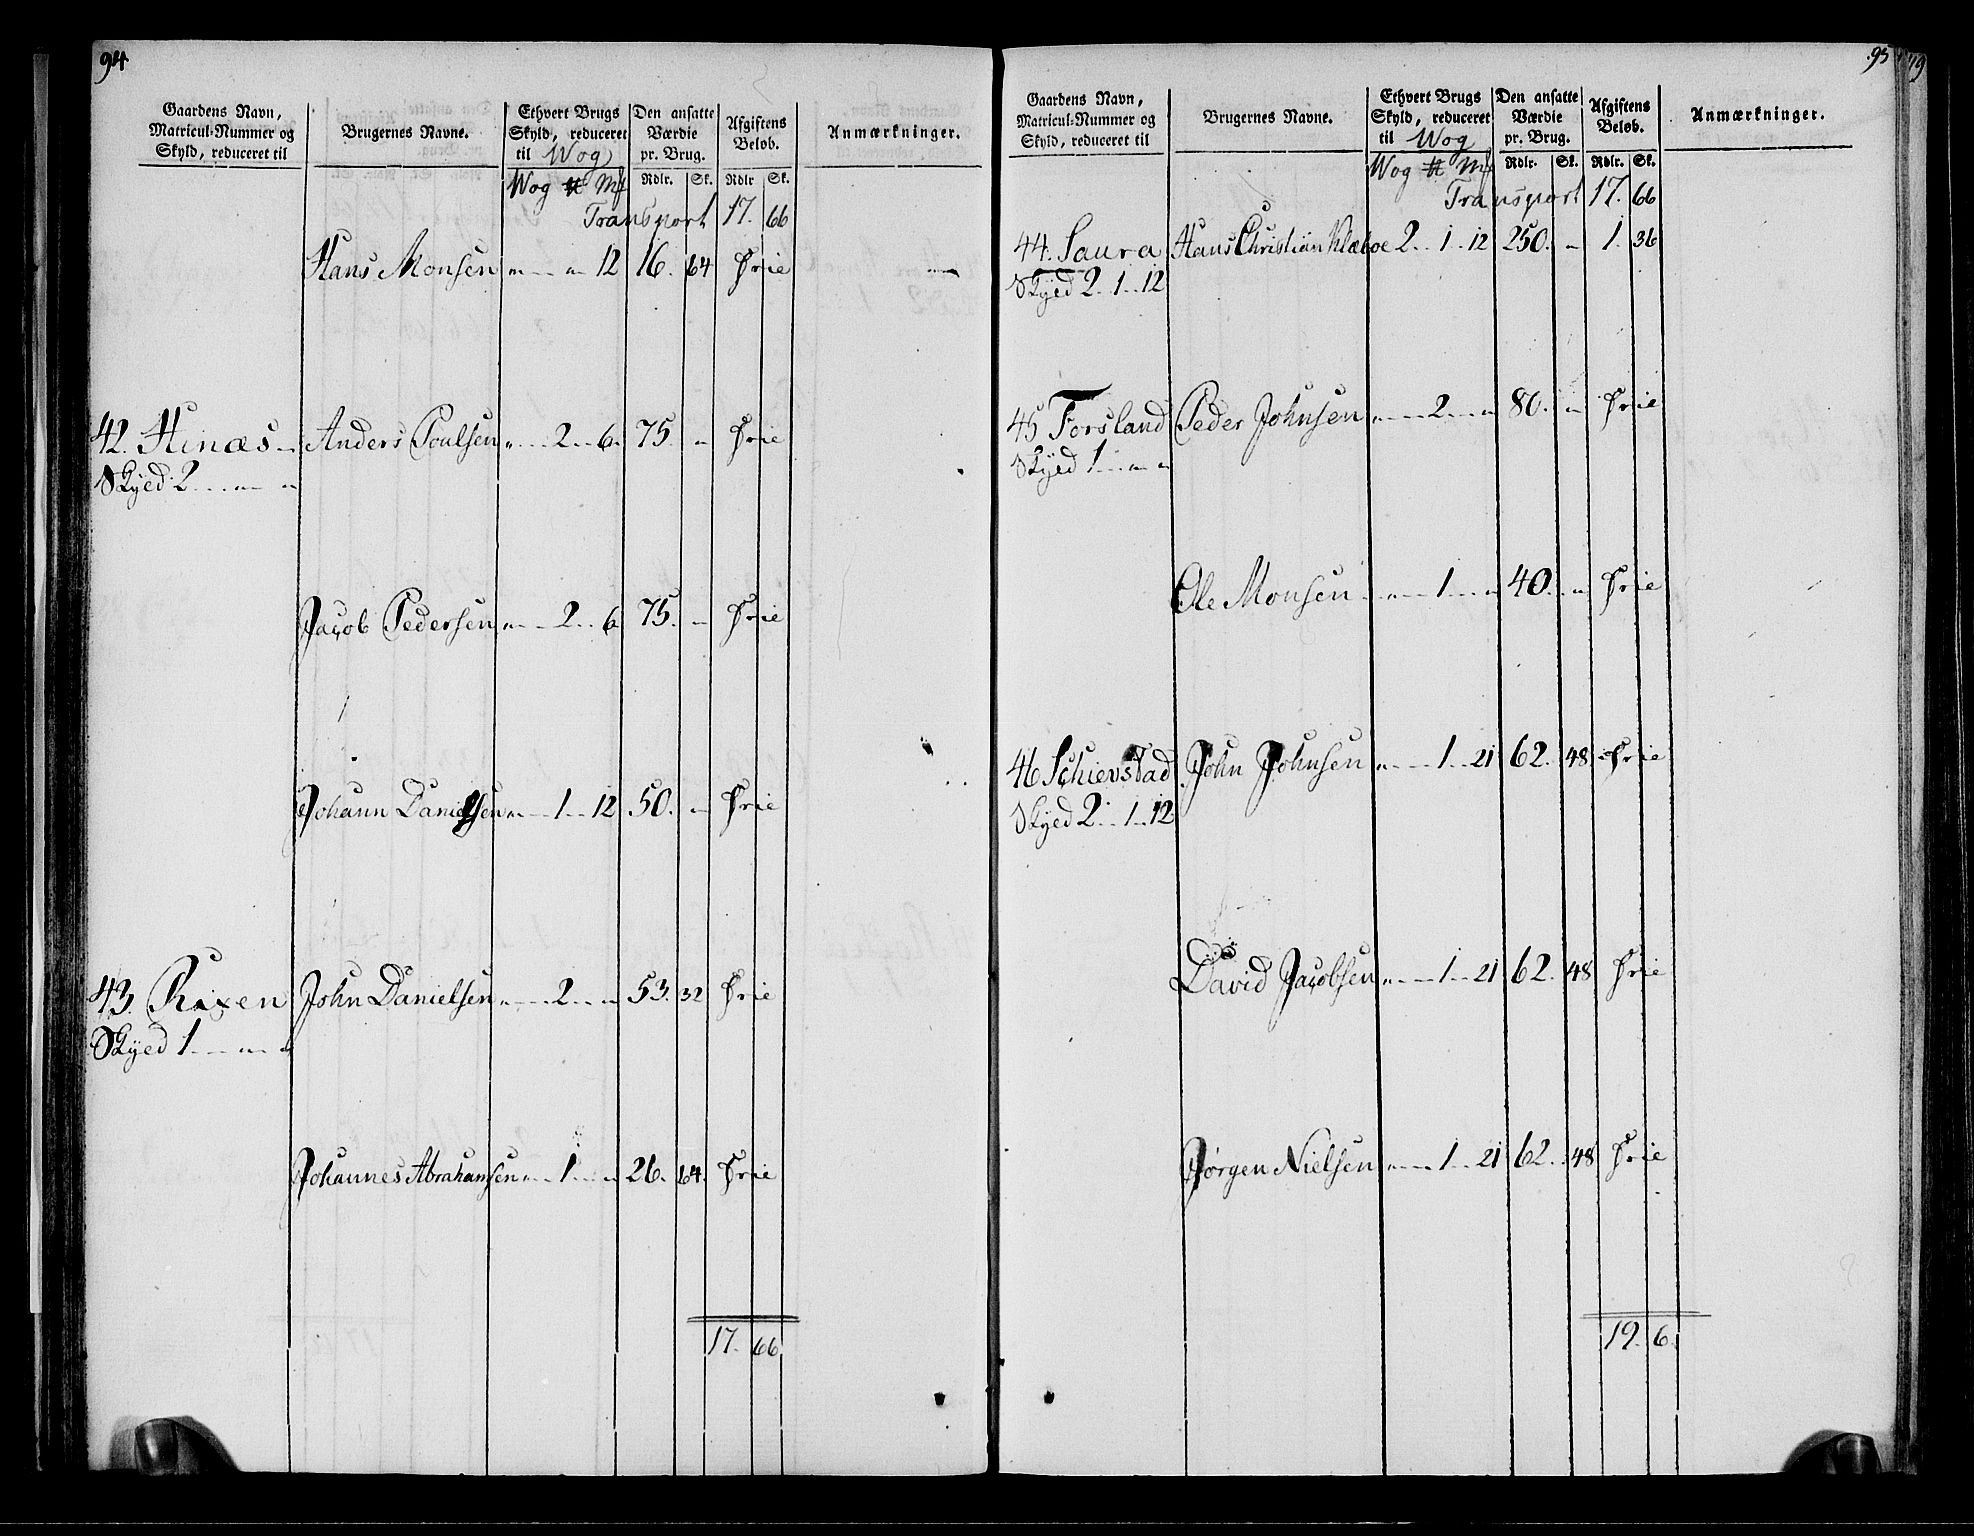 94
Gaardens Navn, Matricul-Nummer og Skyld, reduceret til
Brugernes Navne.
Ethvert Brugs Skyld, reduceret til Wog
Den ansatte Værdie pr. Brug.
Afgiftens Beløb.
Anmærkninger.
Wog ℔ Mk Rdlr. Sk. Rdlr Sk.
Transport 17. 66
Hans Monsen " " 12 16. 64 Frie
42. Hinæs Anders Poulsen " 2 6 75. " Frie
Skyed 2 " "
Jacob Pedersen " 2 6 75. " Frie
Johann Danielsen " 1 12 50. " Frie
43. Rixen John Danielsen " 2 " 53. 32 Frie
Skyed 1 " "
Johannes Abrahamsen " 1 " 26. 64. Frie
17. 66
95
Gaardens Navn, Matricul-Nummer og Skyld, reduceret til
Brugernes Navne.
Ethvert Brugs Skyld, reduceret til Wog
Den ansatte Værdie pr. Brug.
Afgiftens Beløb.
Anmærkninger.
Wog ℔ Mk Rdlr. Sk. Rdlr. Sk.
Transport 17. 66
44. Saura Hans Christian Klæboe 2 1 12 250. " 1. 36
Skyed 2 1 12
45 Forsland Peder Johnsen " 2 " 80. " Frie
Skyed 1 " "
Ole Monsen " 1 " 40. " Frie
46 Schievstad John Johnsen " 1 21 62. 48 Frie
Skyed 2 1 12
David Jacobsen " 1 21 62. 48 Frie
Jørgen Nielsen " 1 21 62. 48 Frie
19. 6.